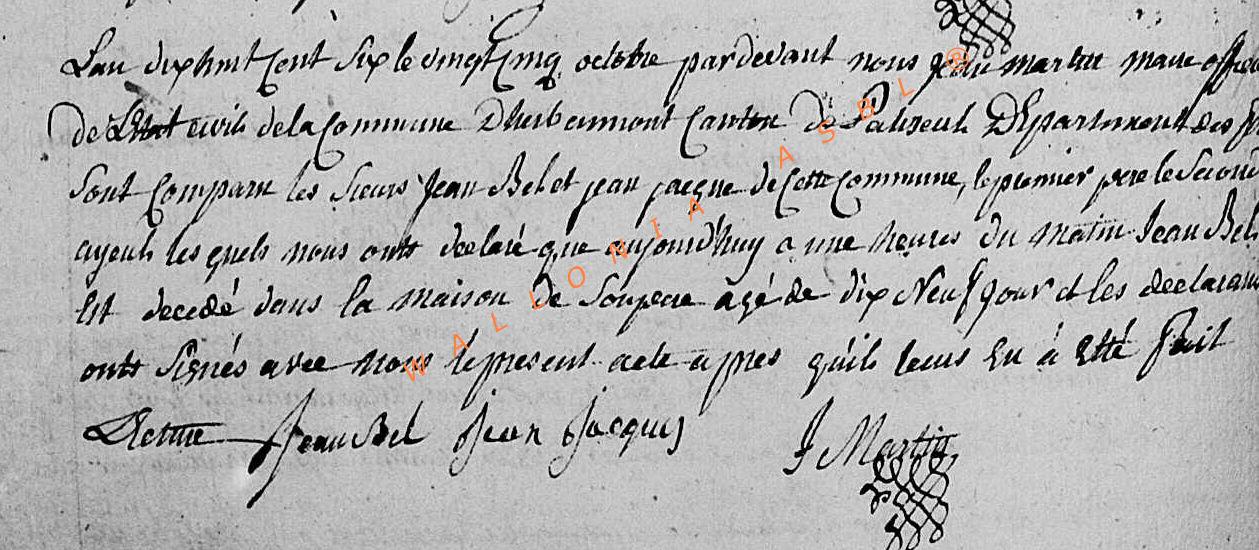 Lan dixhuit Cent Six le vingt Cinq octobre pardevant nous jean martin maire officier
de L'Etat civil de la Commune Dherbeumont Canton de Paliseul Département des
Sont Comparu les Sieurs Jean Bel et jean jacque de Cette Commune, le premier pere le Second
ayeul les quels nous ont declaré que aujourd'huy a une heures du matin Jean Bel
Est decedé dans la maison de Son pere agé de dix Neuf jour et les declarans
ont Signés avec nous le present acte apres qu'il leur En à Etté fait
Lecture Jean Bel Jean Jacques J Martin
WALLONIA ASBL ®